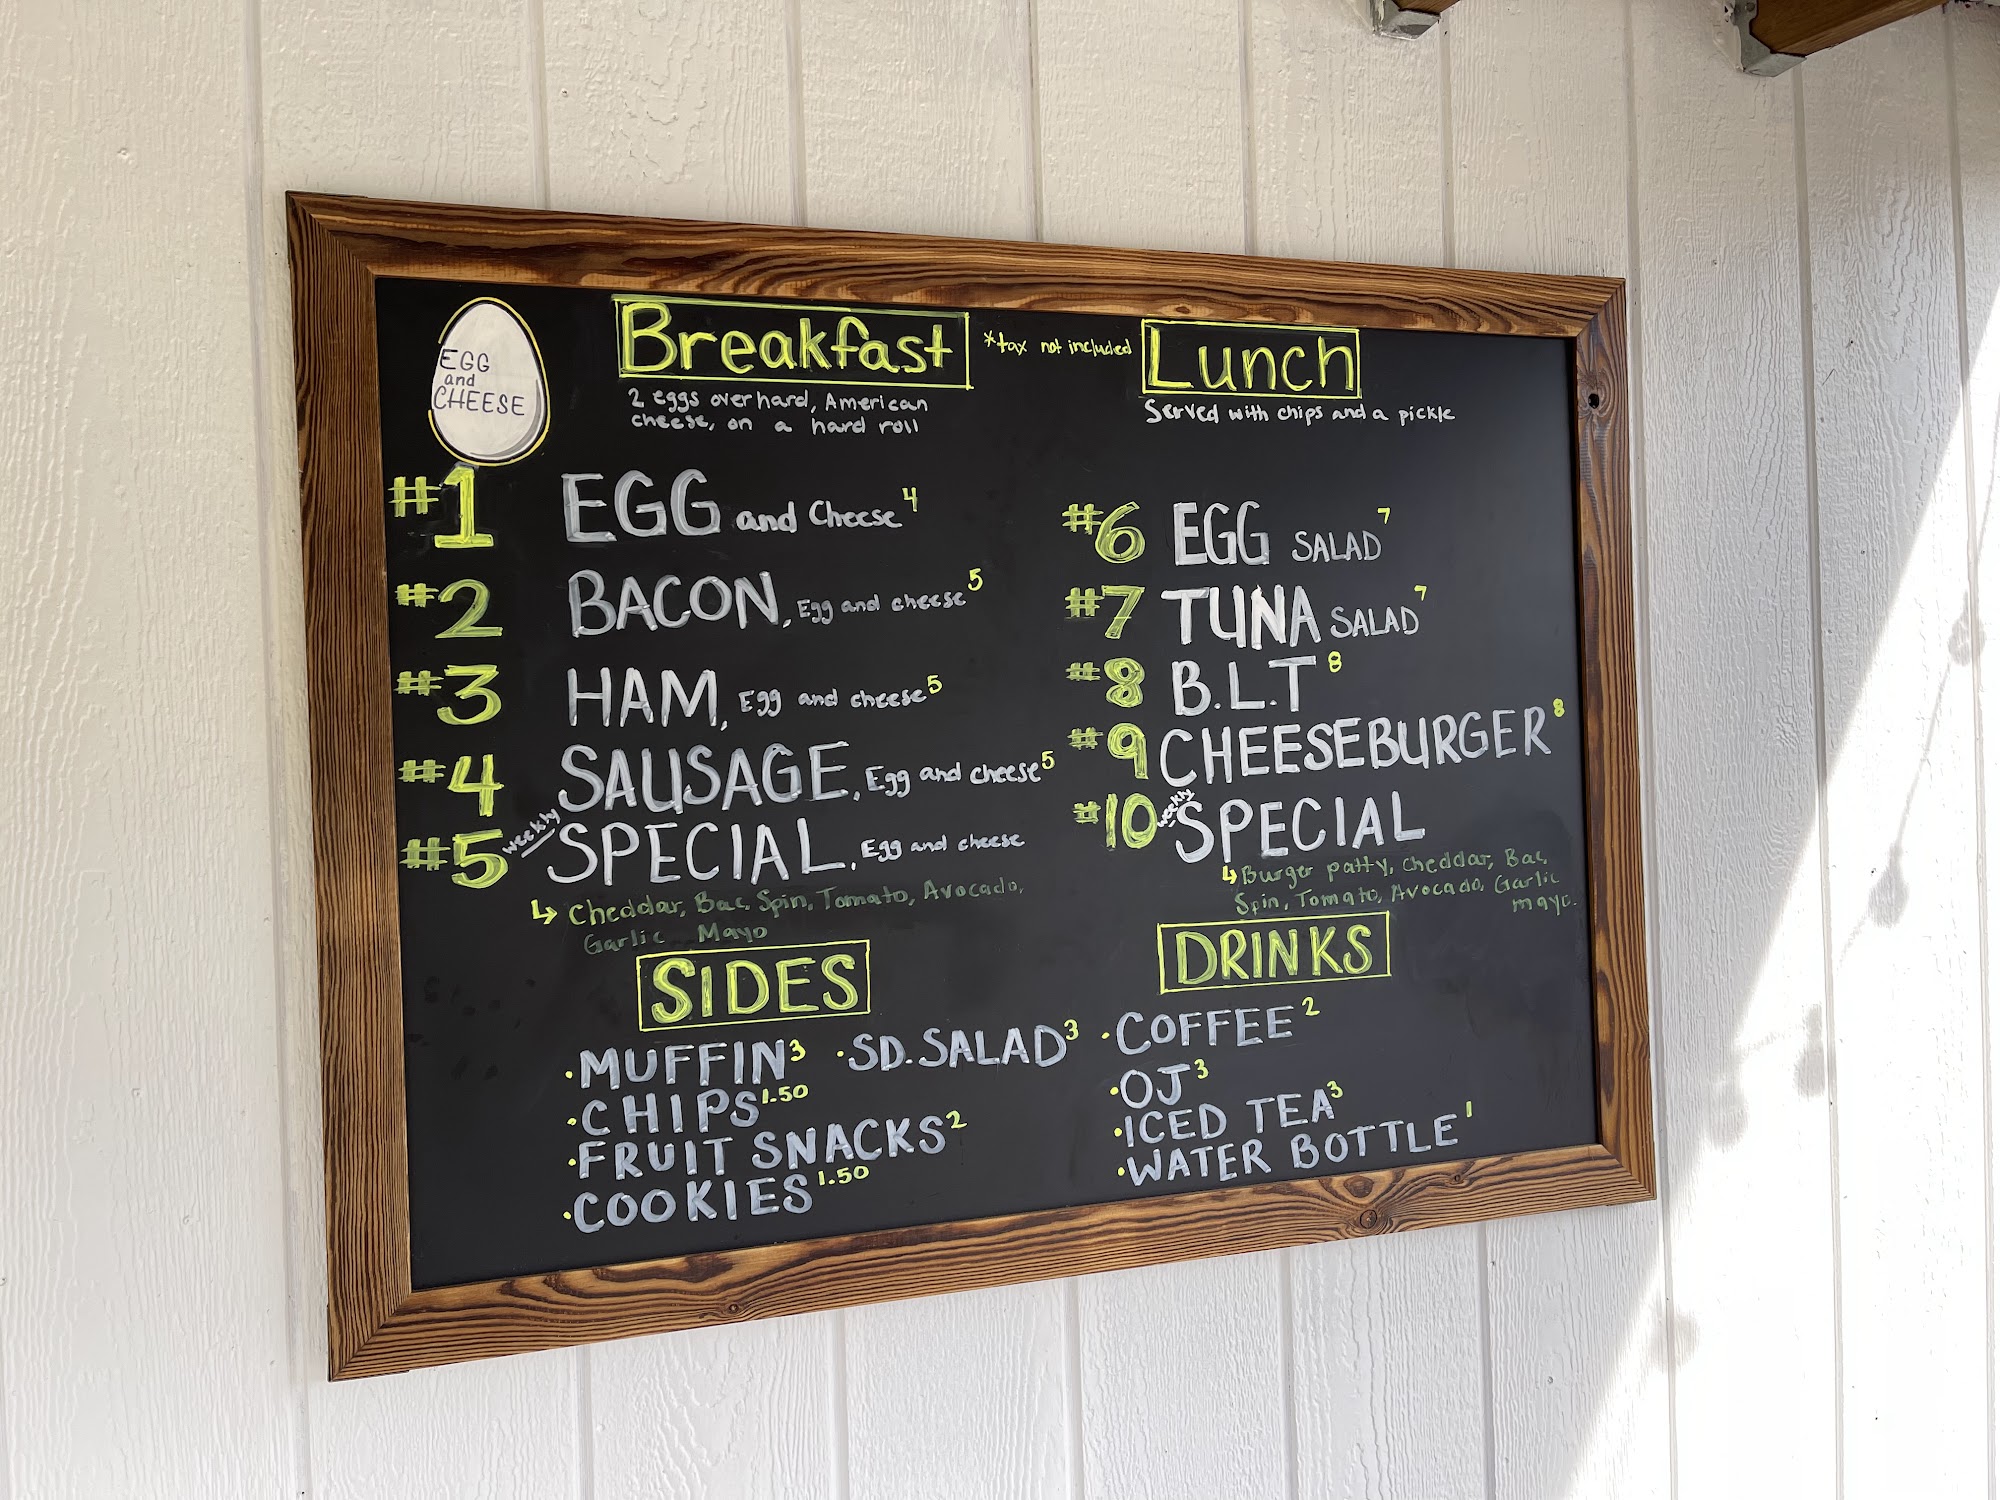 EGG
and
CHEESE
Breakfast
2 eggs over hard, American
cheese, on a hard roll
*tax not included
#1 EGG and Cheese 4
#2 BACON, Egg and cheese 5
#3 HAM, Egg and cheese 5
#4 SAUSAGE, Egg and cheese 5
#5 weekly SPECIAL, Egg and cheese
↳ Cheddar, Bac, Spin, Tomato, Avocado,
Garlic Mayo
Lunch
Served with chips and a pickle
#6 EGG SALAD 7
#7 TUNA SALAD 7
#8 B.L.T 8
#9 CHEESEBURGER 8
#10 weekly SPECIAL
↳ Burger patty, Cheddar, Bac,
Spin, Tomato, Avocado, Garlic
mayo.
SIDES
·MUFFIN 3 ·SD.SALAD 3
·CHIPS 1.50
·FRUIT SNACKS 2
·COOKIES 1.50
DRINKS
·COFFEE 2
·OJ 3
·ICED TEA 3
·WATER BOTTLE 1